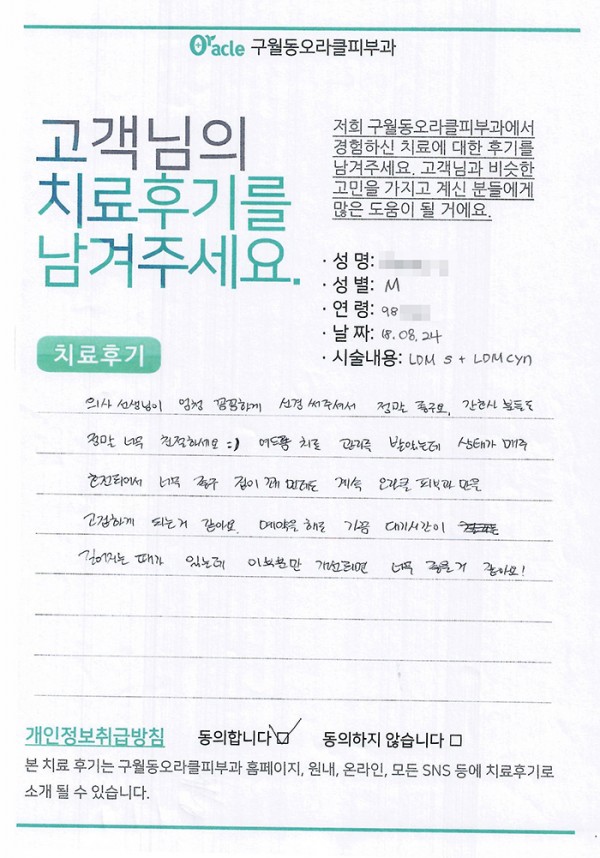 Oracle 구월동오라클피부과
고객님의
치료후기를
남겨주세요.
저희 구월동오라클피부과에서
경험하신 치료에 대한 후기를
남겨주세요. 고객님과 비슷한
고민을 가지고 계신 분들에게
많은 도움이 될 거에요.
· 성 명:
· 성 별: M
· 연 령: 98
· 날 짜: 18.08.24
· 시술내용: LDM S + LDM cyn
치료후기
의사 선생님이 엄청 꼼꼼하게 신경 써주셔서 정말 좋구요, 간호사 분들도
정말 너무 친절하세요 :) 여드름 치료 관리를 받았는데 상태가 매우
호전되어서 너무 좋구 집이 꽤 먼데도 계속 오라클 피부과 만을
고집하게 되는거 같아요. 예약을 해도 가끔 대기시간이
길어지는 때가 있는데 이부분만 개선되면 너무 좋을거 같아요!
개인정보취급방침 동의합니다 동의하지 않습니다
본 치료 후기는 구월동오라클피부과 홈페이지, 원내, 온라인, 모든 SNS 등에 치료후기로
소개 될 수 있습니다.